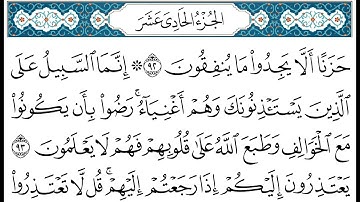 الجُزْءُ الحَادِي عَشَرَ
حَزَنًا أَلَّا يَجِدُوا۟ مَا يُنفِقُونَ ٩٢ ۞ إِنَّمَا ٱلسَّبِيلُ عَلَى
ٱلَّذِينَ يَسْتَـْٔذِنُونَكَ وَهُمْ أَغْنِيَآءُ ۚ رَضُوا۟ بِأَن يَكُونُوا۟
مَعَ ٱلْخَوَالِفِ وَطَبَعَ ٱللَّهُ عَلَىٰ قُلُوبِهِمْ فَهُمْ لَا يَعْلَمُونَ ٩٣
يَعْتَذِرُونَ إِلَيْكُمْ إِذَا رَجَعْتُمْ إِلَيْهِمْ ۚ قُل لَّا تَعْتَذِرُوا۟